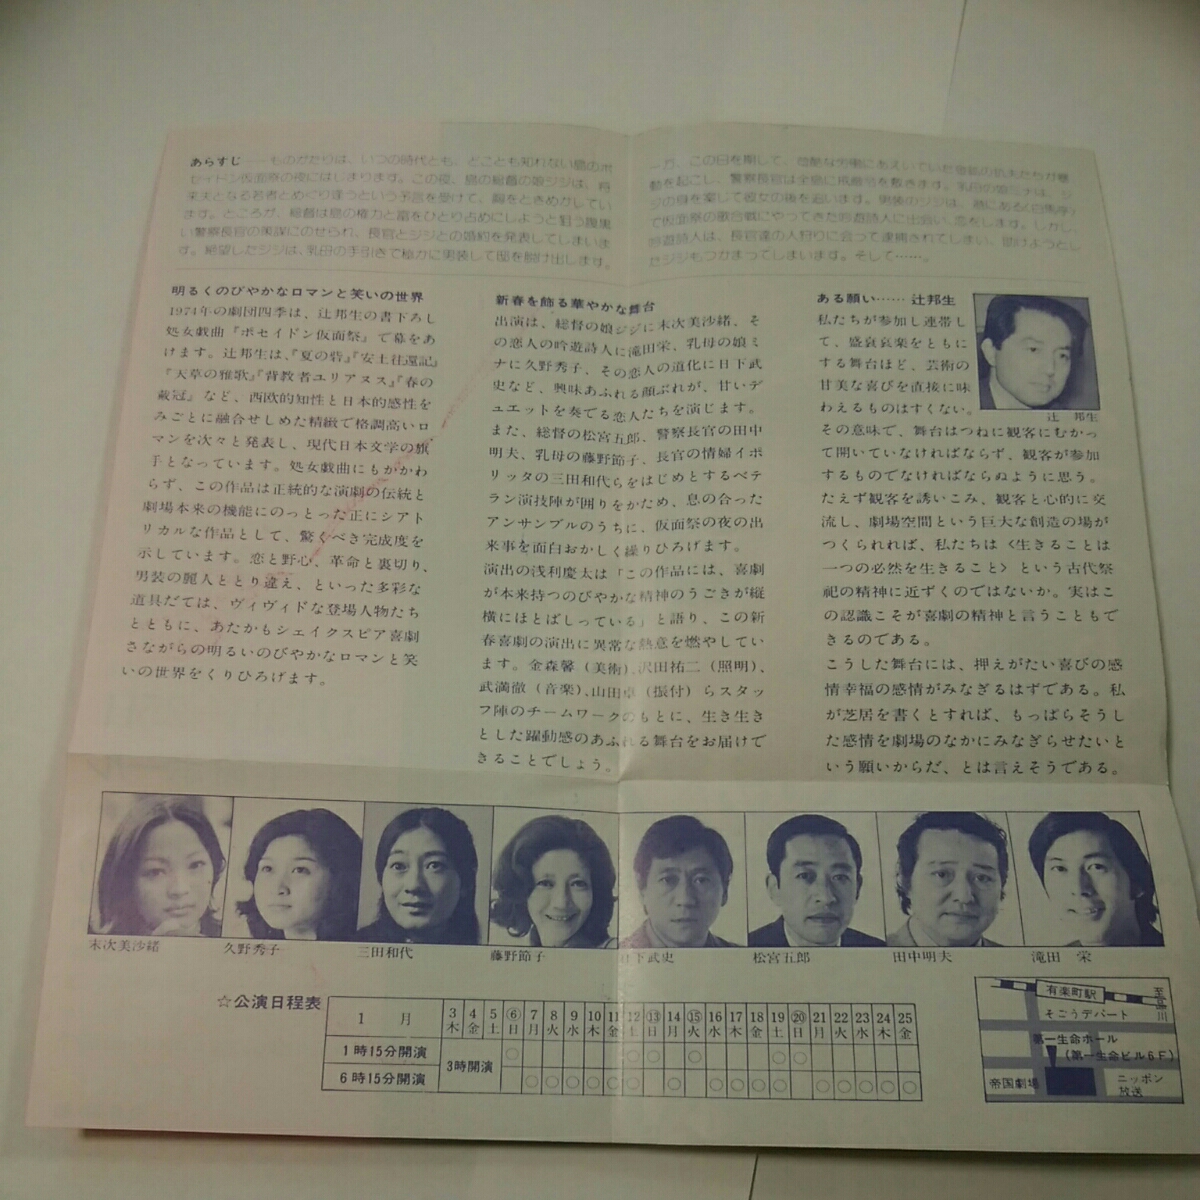 あらすじ──ものがたりは、いつの時代とも、どことも知れない島のポ
セイドン仮面祭の夜にはじまります。この夜、島の総督の娘ジジは、将
来夫となる若者とめぐり逢うという予言を受けて、胸をときめかしてい
ます。ところが、総督は島の権力と富をひとり占めにしようと狙う腹黒
い警察長官の策謀にのせられ、長官とジジとの婚約を発表してしまいま
す。絶望したジジは、乳母の手引きで秘かに男装して邸を脱け出します。
一方、この日を期して、苛酷な労働にあえいでいた
動を起こし、警察長官は全島に戒厳令を敷きます。乳母の娘ミナは、ジ
ジの身を案じて彼女の後を追います。男装のジジは、港にある〈白馬亭〉
で仮面祭の歌合戦にやってきた吟遊詩人に出会い、恋をします。しかし、
吟遊詩人は、長官達の人狩りに会って逮捕されてしまい、助けようとし
たジジもつかまってしまいます。そして……。
明るくのびやかなロマンと笑いの世界
1974年の劇団四季は、辻邦生の書下ろし
処女戯曲『ポセイドン仮面祭』で幕をあ
けます。辻邦生は、『夏の砦』『安土往還記』
『天草の雅歌』『背教者ユリアヌス』『春の
戴冠』など、西欧的知性と日本的感性を
みごとに融合せしめた精緻で格調高いロ
マンを次々と発表し、現代日本文学の旗
手となっています。処女戯曲にもかかわ
らず、この作品は正統的な演劇の伝統と
劇場本来の機能にのっとった正にシアト
リカルな作品として、驚くべき完成度を
示しています。恋と野心、革命と裏切り、
男装の麗人ととり違え、といった多彩な
道具だては、ヴィヴィドな登場人物たち
とともに、あたかもシェイクスピア喜劇
さながらの明るいのびやかなロマンと笑
いの世界をくりひろげます。
新春を飾る華やかな舞台
出演は、総督の娘ジジに末次美沙緒、そ
の恋人の吟遊詩人に滝田栄、乳母の娘ミ
ナに久野秀子、その恋人の道化に日下武
史など、興味あふれる顔ぶれが、甘いデ
ュエットを奏でる恋人たちを演じます。
また、総督の松宮五郎、警察長官の田中
明夫、乳母の藤野節子、長官の情婦イポ
リッタの三田和代らをはじめとするベテ
ラン演技陣が囲りをかため、息の合った
アンサンブルのうちに、仮面祭の夜の出
来事を面白おかしく繰りひろげます。
演出の浅利慶太は「この作品には、喜劇
が本来持つのびやかな精神のうごきが縦
横にほとばしっている」と語り、この新
春喜劇の演出に異常な熱意を燃やしてい
ます。金森馨（美術）、沢田祐二（照明）、
武満徹（音楽）、山田卓（振付）らスタッ
フ陣のチームワークのもとに、生き生き
とした躍動感のあふれる舞台をお届けで
きることでしょう。
ある願い…… 辻邦生
私たちが参加し連帯し
て、盛哀哀楽をともに
する舞台ほど、芸術の
甘美な喜びを直接に味
わえるものはすくない。
辻 邦生
その意味で、舞台はつねに観客にむかっ
て開いていなければならず、観客が参加
するものでなければならぬように思う。
たえず観客を誘いこみ、観客と心的に交
流し、劇場空間という巨大な創造の場が
つくられれば、私たちは〈生きることは
一つの必然を生きること〉という古代祭
祀の精神に近ずくのではないか。実はこ
の認識こそが喜劇の精神と言うこともで
きるのである。
こうした舞台には、押えがたい喜びの感
情幸福の感情がみなぎるはずである。私
が芝居を書くとすれば、もっぱらそうし
た感情を劇場のなかにみなぎらせたいと
いう願いからだ、とは言えそうである。
末次美沙緒 久野秀子 三田和代 藤野節子 日下武史 松宮五郎 田中明夫 滝田 栄
☆公演日程表
1 月 3 4 5 ⑥ 7 8 9 10 11 12 ⑬ 14 ⑮ 16 17 18 19 ⑳ 21 22 23 24 25
木 金 土 日 月 火 水 木 金 土 日 月 火 水 木 金 土 日 月 火 水 木 金
1時15分開演 3時開演 ○ ○ ○ ○ ○ ○
6時15分開演 ○ ○ ○ ○ ○ ○ ○ ○ ○ ○ ○ ○ ○ ○ ○ ○
有楽町駅
至品川
そごうデパート
第一生命ホール
（第一生命ビル6F）
帝国劇場
ニッポン
放送